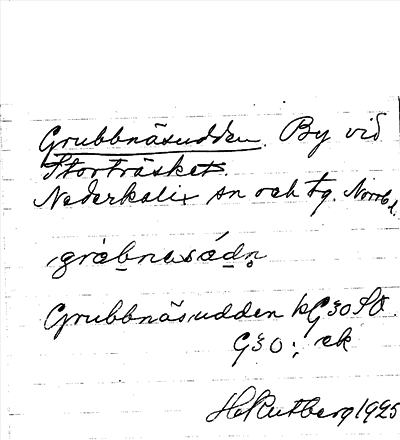 Grubbnäsudden. By vid
Storträsket.
Nederkalix sn och tg. Norrb.
Grubbnäsudden kG30SV
G30; ek
H Rutberg 1925